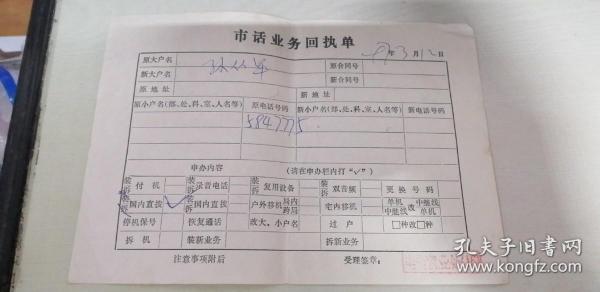 市话业务回执单
年3月12日
原大户名 原合同号
新大户名 新合同号
原地址 新地址
原小户名(部、处、科、室、人名等) 原电话号码 新小户名(部、处、科、室、人名等) 新电话号码
5847775
申办内容 (请在申办栏内打“√”)
装拆 付机 装拆 录音电话 装拆 复用设备 装拆 双音频 更换号码
装拆 国内直拨 √ 国内直拨 户外移机 局内 跨局 宅内移机 单机 中继线 改 中继线 单机
停机保号 恢复通话 改大、小户名 过户 □种改□种
拆机 装新业务 拆新业务
注意事项附后 受理签章:
孔夫子旧书网
www.kongfz.com